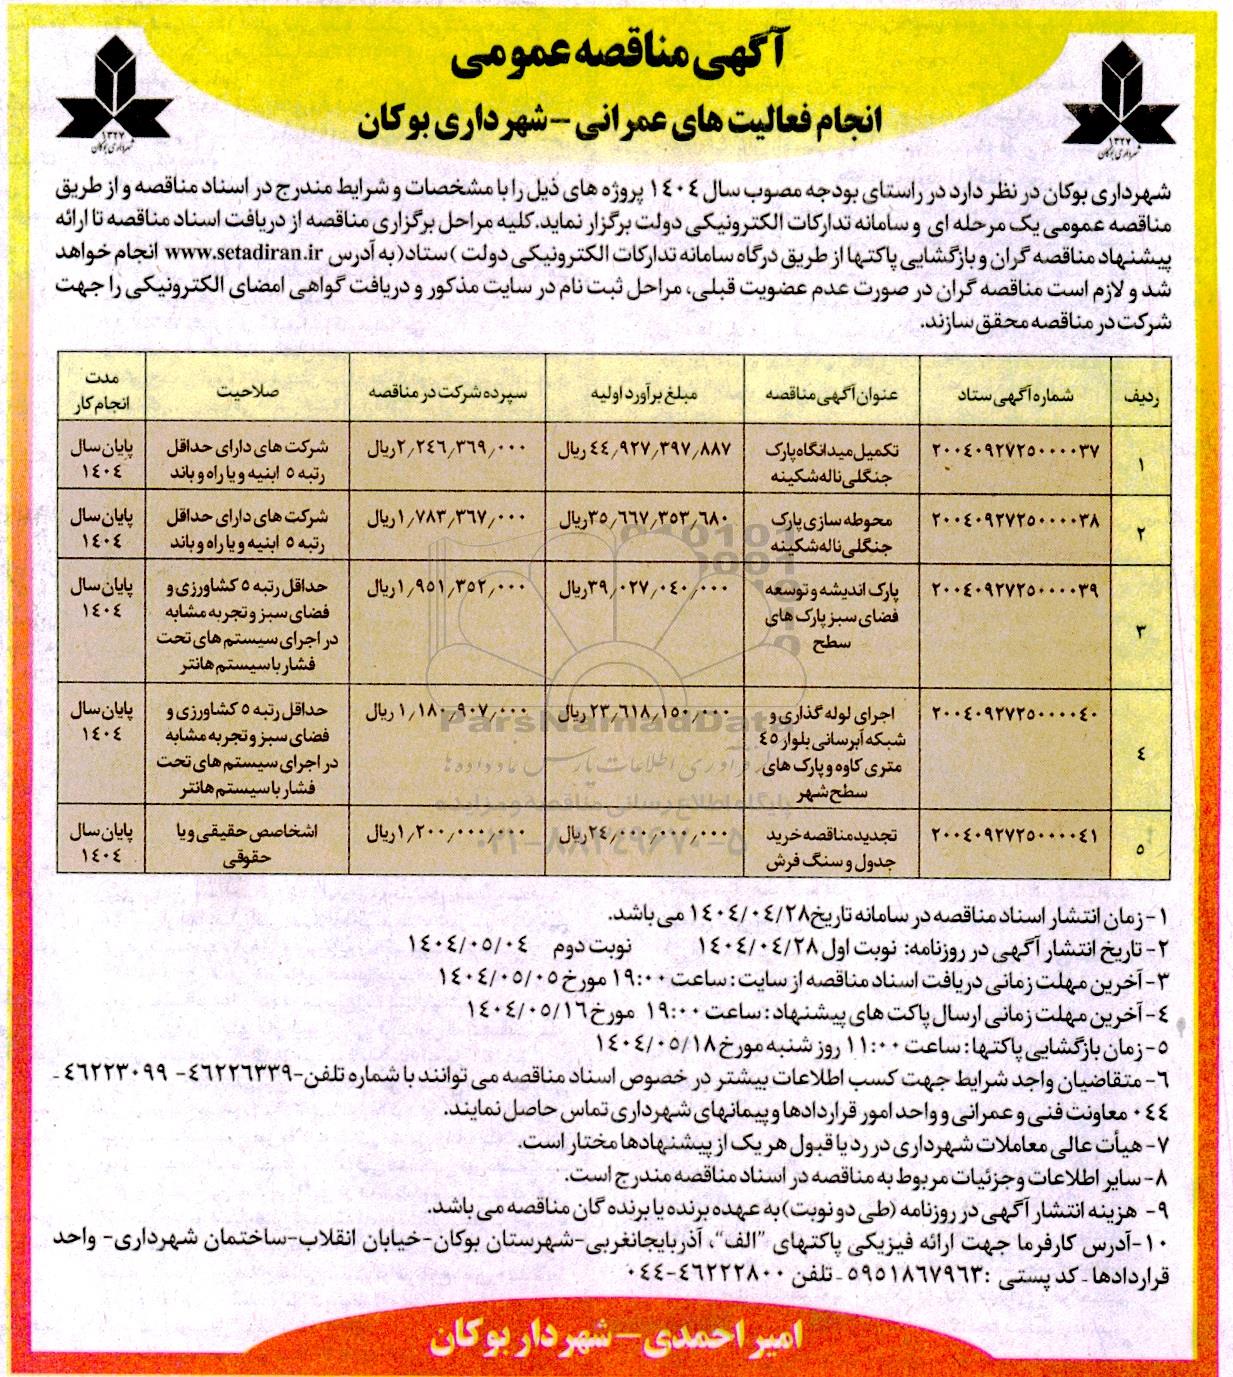 آگهی مناقصه عمومی
انجام فعالیت های عمرانی - شهرداری بوکان
۱۳۲۷
شهرداری بوکان
۱۳۲۷
شهرداری بوکان
شهرداری بوکان در نظر دارد در راستای بودجه مصوب سال ۱۴۰۴ پروژه های ذیل را با مشخصات و شرایط مندرج در اسناد مناقصه و از طریق
مناقصه عمومی یک مرحله ای و سامانه تدارکات الکترونیکی دولت برگزار نماید. کلیه مراحل برگزاری مناقصه از دریافت اسناد مناقصه تا ارائه
پیشنهاد مناقصه گران و بازگشایی پاکتها از طریق درگاه سامانه تدارکات الکترونیکی دولت )ستاد( به آدرس www.setadiran.ir انجام خواهد
شد و لازم است مناقصه گران در صورت عدم عضویت قبلی، مراحل ثبت نام در سایت مذکور و دریافت گواهی امضای الکترونیکی را جهت
شرکت در مناقصه محقق سازند.
ردیف | شماره آگهی ستاد | عنوان آگهی مناقصه | مبلغ برآورد اولیه | سپرده شرکت در مناقصه | صلاحیت | مدت انجام کار
۱ | ۲۰۰۴۰۹۲۷۲۵۰۰۰۰۳۷ | تکمیل میدانگاه پارک جنگلی ناله شکینه | ۴۴٫۹۲۷٫۳۹۷٫۸۸۷ ریال | ۲٫۲۴۶٫۳۶۹٫۰۰۰ ریال | شرکت های دارای حداقل رتبه ۵ ابنیه و یا راه و باند | پایان سال ۱۴۰۴
۲ | ۲۰۰۴۰۹۲۷۲۵۰۰۰۰۳۸ | محوطه سازی پارک جنگلی ناله شکینه | ۳۵٫۶۶۷٫۳۵۳٫۶۸۰ ریال | ۱٫۷۸۳٫۳۶۷٫۰۰۰ ریال | شرکت های دارای حداقل رتبه ۵ ابنیه و یا راه و باند | پایان سال ۱۴۰۴
۳ | ۲۰۰۴۰۹۲۷۲۵۰۰۰۰۳۹ | پارک اندیشه و توسعه فضای سبز پارک های سطح | ۳۹٫۰۲۷٫۰۴۰٫۰۰۰ ریال | ۱٫۹۵۱٫۳۵۲٫۰۰۰ ریال | حداقل رتبه ۵ کشاورزی و فضای سبز و تجربه مشابه در اجرای سیستم های تحت فشار با سیستم هانتر | پایان سال ۱۴۰۴
۴ | ۲۰۰۴۰۹۲۷۲۵۰۰۰۰۴۰ | اجرای لوله گذاری و شبکه آبرسانی بلوار ۴۵ متری کاوه و پارک های سطح شهر | ۲۳٫۶۱۸٫۱۵۰٫۰۰۰ ریال | ۱٫۱۸۰٫۹۰۷٫۰۰۰ ریال | حداقل رتبه ۵ کشاورزی و فضای سبز و تجربه مشابه در اجرای سیستم های تحت فشار با سیستم هانتر | پایان سال ۱۴۰۴
۵ | ۲۰۰۴۰۹۲۷۲۵۰۰۰۰۴۱ | تجدید مناقصه خرید جدول و سنگ فرش | ۲۴٫۰۰۰٫۰۰۰٫۰۰۰ ریال | ۱٫۲۰۰٫۰۰۰٫۰۰۰ ریال | اشخاصص حقیقی و یا حقوقی | پایان سال ۱۴۰۴
ParsNamadData
پایگاه اطلاع رسانی مناقصه و مزایده
۰۲۱-۸۸۳۴۹۶۷۰-۵
۱- زمان انتشار اسناد مناقصه در سامانه تاریخ ۱۴۰۴/۰۴/۲۸ می باشد.
۲- تاریخ انتشار آگهی در روزنامه: نوبت اول ۱۴۰۴/۰۴/۲۸ نوبت دوم ۱۴۰۴/۰۵/۰۴
۳- آخرین مهلت زمانی دریافت اسناد مناقصه از سایت: ساعت ۱۹:۰۰ مورخ ۱۴۰۴/۰۵/۰۵
۴- آخرین مهلت زمانی ارسال پاکت های پیشنهاد: ساعت ۱۹:۰۰ مورخ ۱۴۰۴/۰۵/۱۶
۵- زمان بازگشایی پاکتها: ساعت ۱۱:۰۰ روز شنبه مورخ ۱۴۰۴/۰۵/۱۸
۶- متقاضیان واجد شرایط جهت کسب اطلاعات بیشتر در خصوص اسناد مناقصه می توانند با شماره تلفن-۴۶۲۲۶۳۳۹- ۴۶۲۲۳۰۹۹ -
۰۴۴ معاونت فنی و عمرانی و واحد امور قراردادها و پیمانهای شهرداری تماس حاصل نمایند.
۷- هیأت عالی معاملات شهرداری در رد یا قبول هر یک از پیشنهادها مختار است.
۸- سایر اطلاعات و جزئیات مربوط به مناقصه در اسناد مناقصه مندرج است.
۹- هزینه انتشار آگهی در روزنامه (طی دو نوبت) به عهده برنده یا برنده گان مناقصه می باشد.
۱۰-آدرس کارفرما جهت ارائه فیزیکی پاکتهای "الف"، آذربایجانغربی-شهرستان بوکان-خیابان انقلاب-ساختمان شهرداری- واحد
قراردادها - کد پستی :۵۹۵۱۸۶۷۹۶۳ - تلفن ۴۶۲۲۲۸۰۰-۰۴۴
امیر احمدی - شهردار بوکان